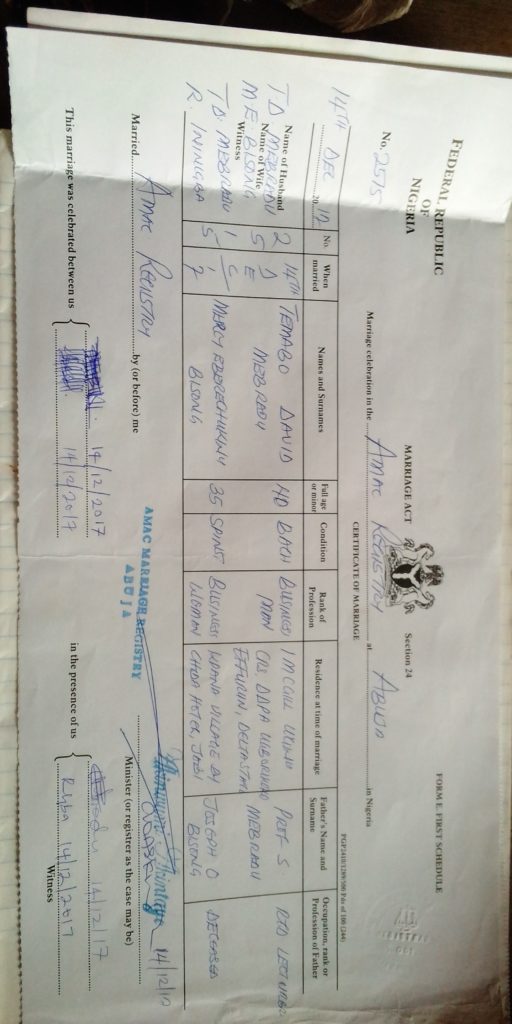 FEDERAL REPUBLIC
OF
NIGERIA
FORM E. FIRST SCHEDULE
MARRIAGE ACT Section 24
No. 2575
CERTIFICATE OF MARRIAGE
Marriage celebration in the AMAC REGISTRY at ABUJA in Nigeria
14TH DEC 20 17
No.
When married
Names and Surnames
Full age or minor
Condition
Rank of Profession
Residence at time of marriage
Father's Name and Surname
Occupation, rank or Profession of Father
Name of Husband
T D MEBRADU
Name of Wife
M E BISONG
Witness
T D. MEBRADU
R.
2 5 1 5
14TH
D E C
17
TEMABO DAVID
MEBRADU
40 BACH
BUSINESS
MAN
EFFURUN, DELTA STATE
PROF S.
MEBRADU
RTD LECTURER
BISONG
35 SPINST
BUSINESS
WOMAN
JOSEPH O
BISONG
DECEASED
Married AMAC REGISTRY by (or before) me
14/12/17
Minister (or registrer as the case may be)
AMAC MARRIAGE REGISTRY
ABUJA
This marriage was celebrated between us
14/12/2017
14/12/2017
in the presence of us
14/12/17
14/12/2017
Witness